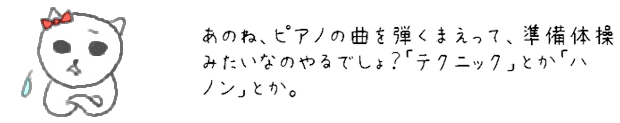 あのね、ピアノの曲を弾くまえって、準備体操
みたいなのやるでしょ?「テクニック」とか「ハ
ノン」とか。